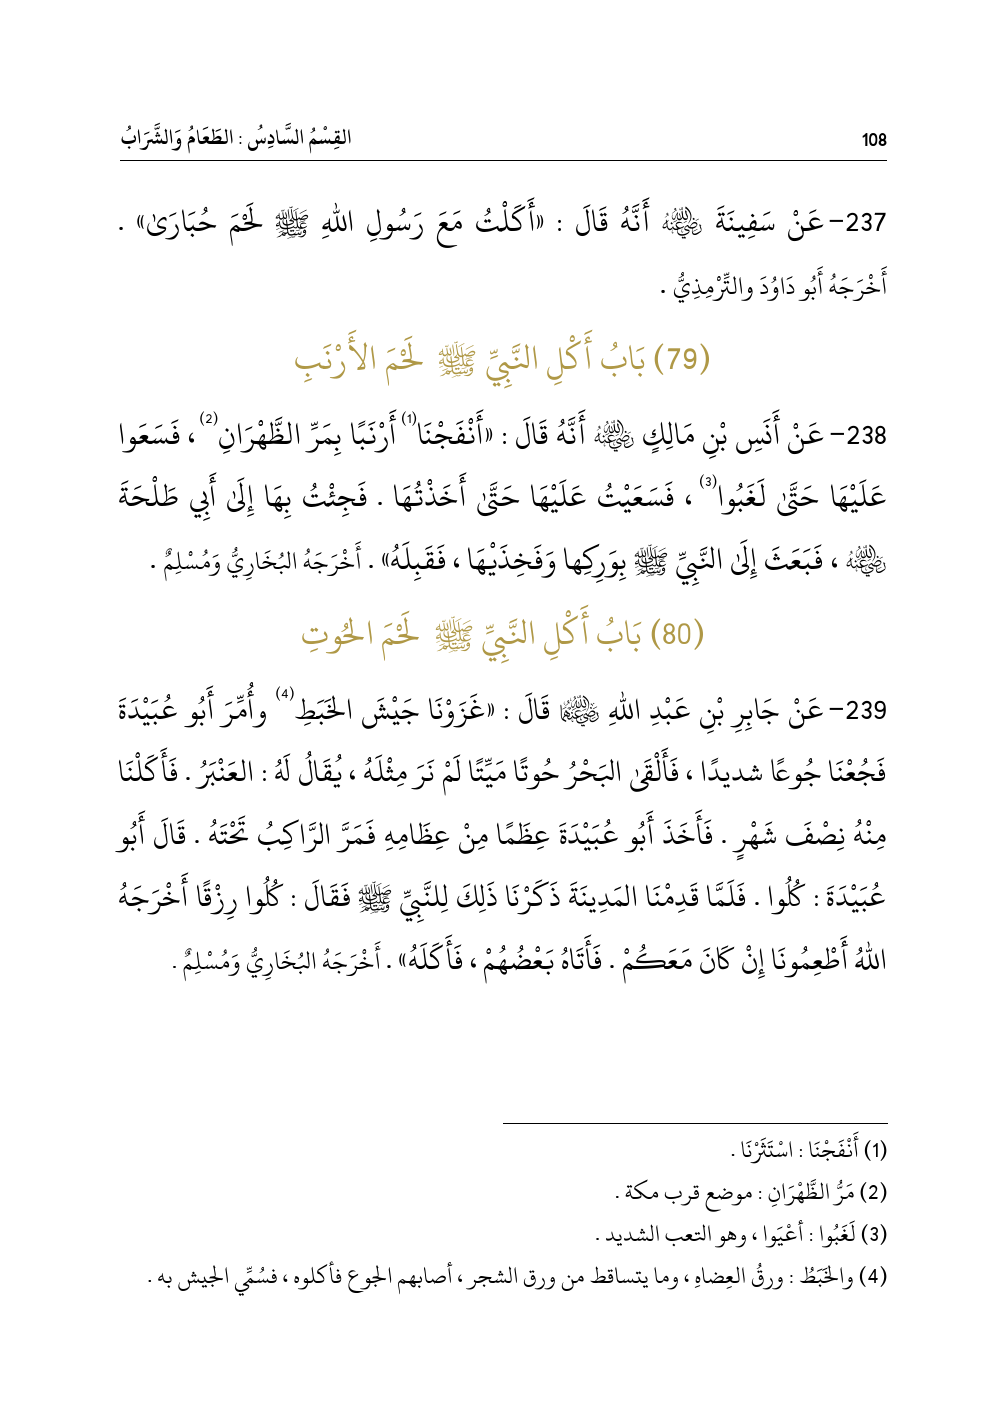 108 القِسْمُ السَّادِسُ : الطَعَامُ وَالشَّرَابُ
237- عَنْ سَفِينَةَ رضي الله عنه أَنَّهُ قَالَ : «أَكَلْتُ مَعَ رَسُولِ اللهِ ﷺ لَحْمَ حُبَارَىٰ» .
أَخْرَجَهُ أَبُو دَاوُدَ والتِّرْمِذِيُّ .
(79) بَابُ أَكْلِ النَّبِيِّ ﷺ لَحْمَ الأَرْنَبِ
238- عَنْ أَنَسِ بْنِ مَالِكٍ رضي الله عنه أَنَّهُ قَالَ : «أَنْفَجْنَا(1) أَرْنَبًا بِمَرِّ الظَّهْرَانِ(2) ، فَسَعَوا
عَلَيْهَا حَتَّىٰ لَغَبُوا(3) ، فَسَعَيْتُ عَلَيْهَا حَتَّىٰ أَخَذْتُهَا . فَجِئْتُ بِهَا إِلَىٰ أَبِي طَلْحَةَ
رضي الله عنه ، فَبَعَثَ إِلَىٰ النَّبِيِّ ﷺ بِوَرِكِها وَفَخِذَيْهَا ، فَقَبِلَهُ» . أَخْرَجَهُ البُخَارِيُّ وَمُسْلِمٌ .
(80) بَابُ أَكْلِ النَّبِيِّ ﷺ لَحْمَ الحُوتِ
239- عَنْ جَابِرِ بْنِ عَبْدِ اللهِ رضي الله عنهما قَالَ : «غَزَوْنَا جَيْشَ الخَبَطِ(4) وأُمِّرَ أَبُو عُبَيْدَةَ
فَجُعْنَا جُوعًا شديدًا ، فَأَلْقَىٰ البَحْرُ حُوتًا مَيِّتًا لَمْ نَرَ مِثْلَهُ ، يُقَالُ لَهُ : العَنْبَرُ . فَأَكَلْنَا
مِنْهُ نِصْفَ شَهْرٍ . فَأَخَذَ أَبُو عُبَيْدَةَ عِظَمًا مِنْ عِظَامِهِ فَمَرَّ الرَّاكِبُ تَحْتَهُ . قَالَ أَبُو
عُبَيْدَةَ : كُلُوا . فَلَمَّا قَدِمْنَا المَدِينَةَ ذَكَرْنَا ذَلِكَ لِلنَّبِيِّ ﷺ فَقَالَ : كُلُوا رِزْقًا أَخْرَجَهُ
اللهُ أَطْعِمُونَا إِنْ كَانَ مَعَكُمْ . فَأَتَاهُ بَعْضُهُمْ ، فَأَكَلَهُ» . أَخْرَجَهُ البُخَارِيُّ وَمُسْلِمٌ .
(1) أَنْفَجْنَا : اسْتَثَرْنَا .
(2) مَرُّ الظَّهْرَانِ : موضع قرب مكة .
(3) لَغَبُوا : أعْيَوا ، وهو التعب الشديد .
(4) والخَبَطُ : ورقُ العِضاهِ ، وما يتساقط من ورق الشجر ، أصابهم الجوع فأكلوه ، فسُمِّي الجيش به .